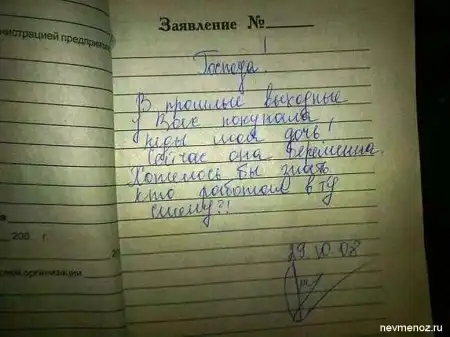 Заявление №
нистрацией предприя
Господа!
В прошлые выходные
у Вас покупала
кеды моя дочь!
Сейчас она беременна.
Хотелось бы знать
кто работал в ту
смену?!
200 г.
лей организации
29.10.08
nevmenoz.ru